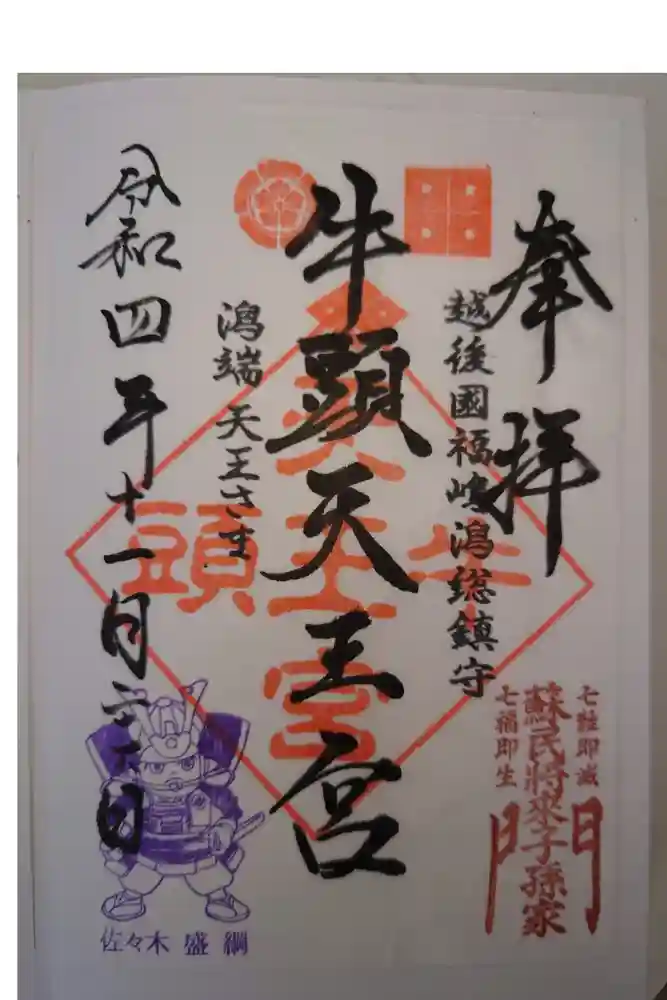 奉拝
越後國福嶋潟総鎮守
牛頭天王宮
潟端 天王さま
令和四年十一月 日
牛頭天王宮
七難即滅
蘇民將來子孫家
門
七福即生
佐々木 盛綱